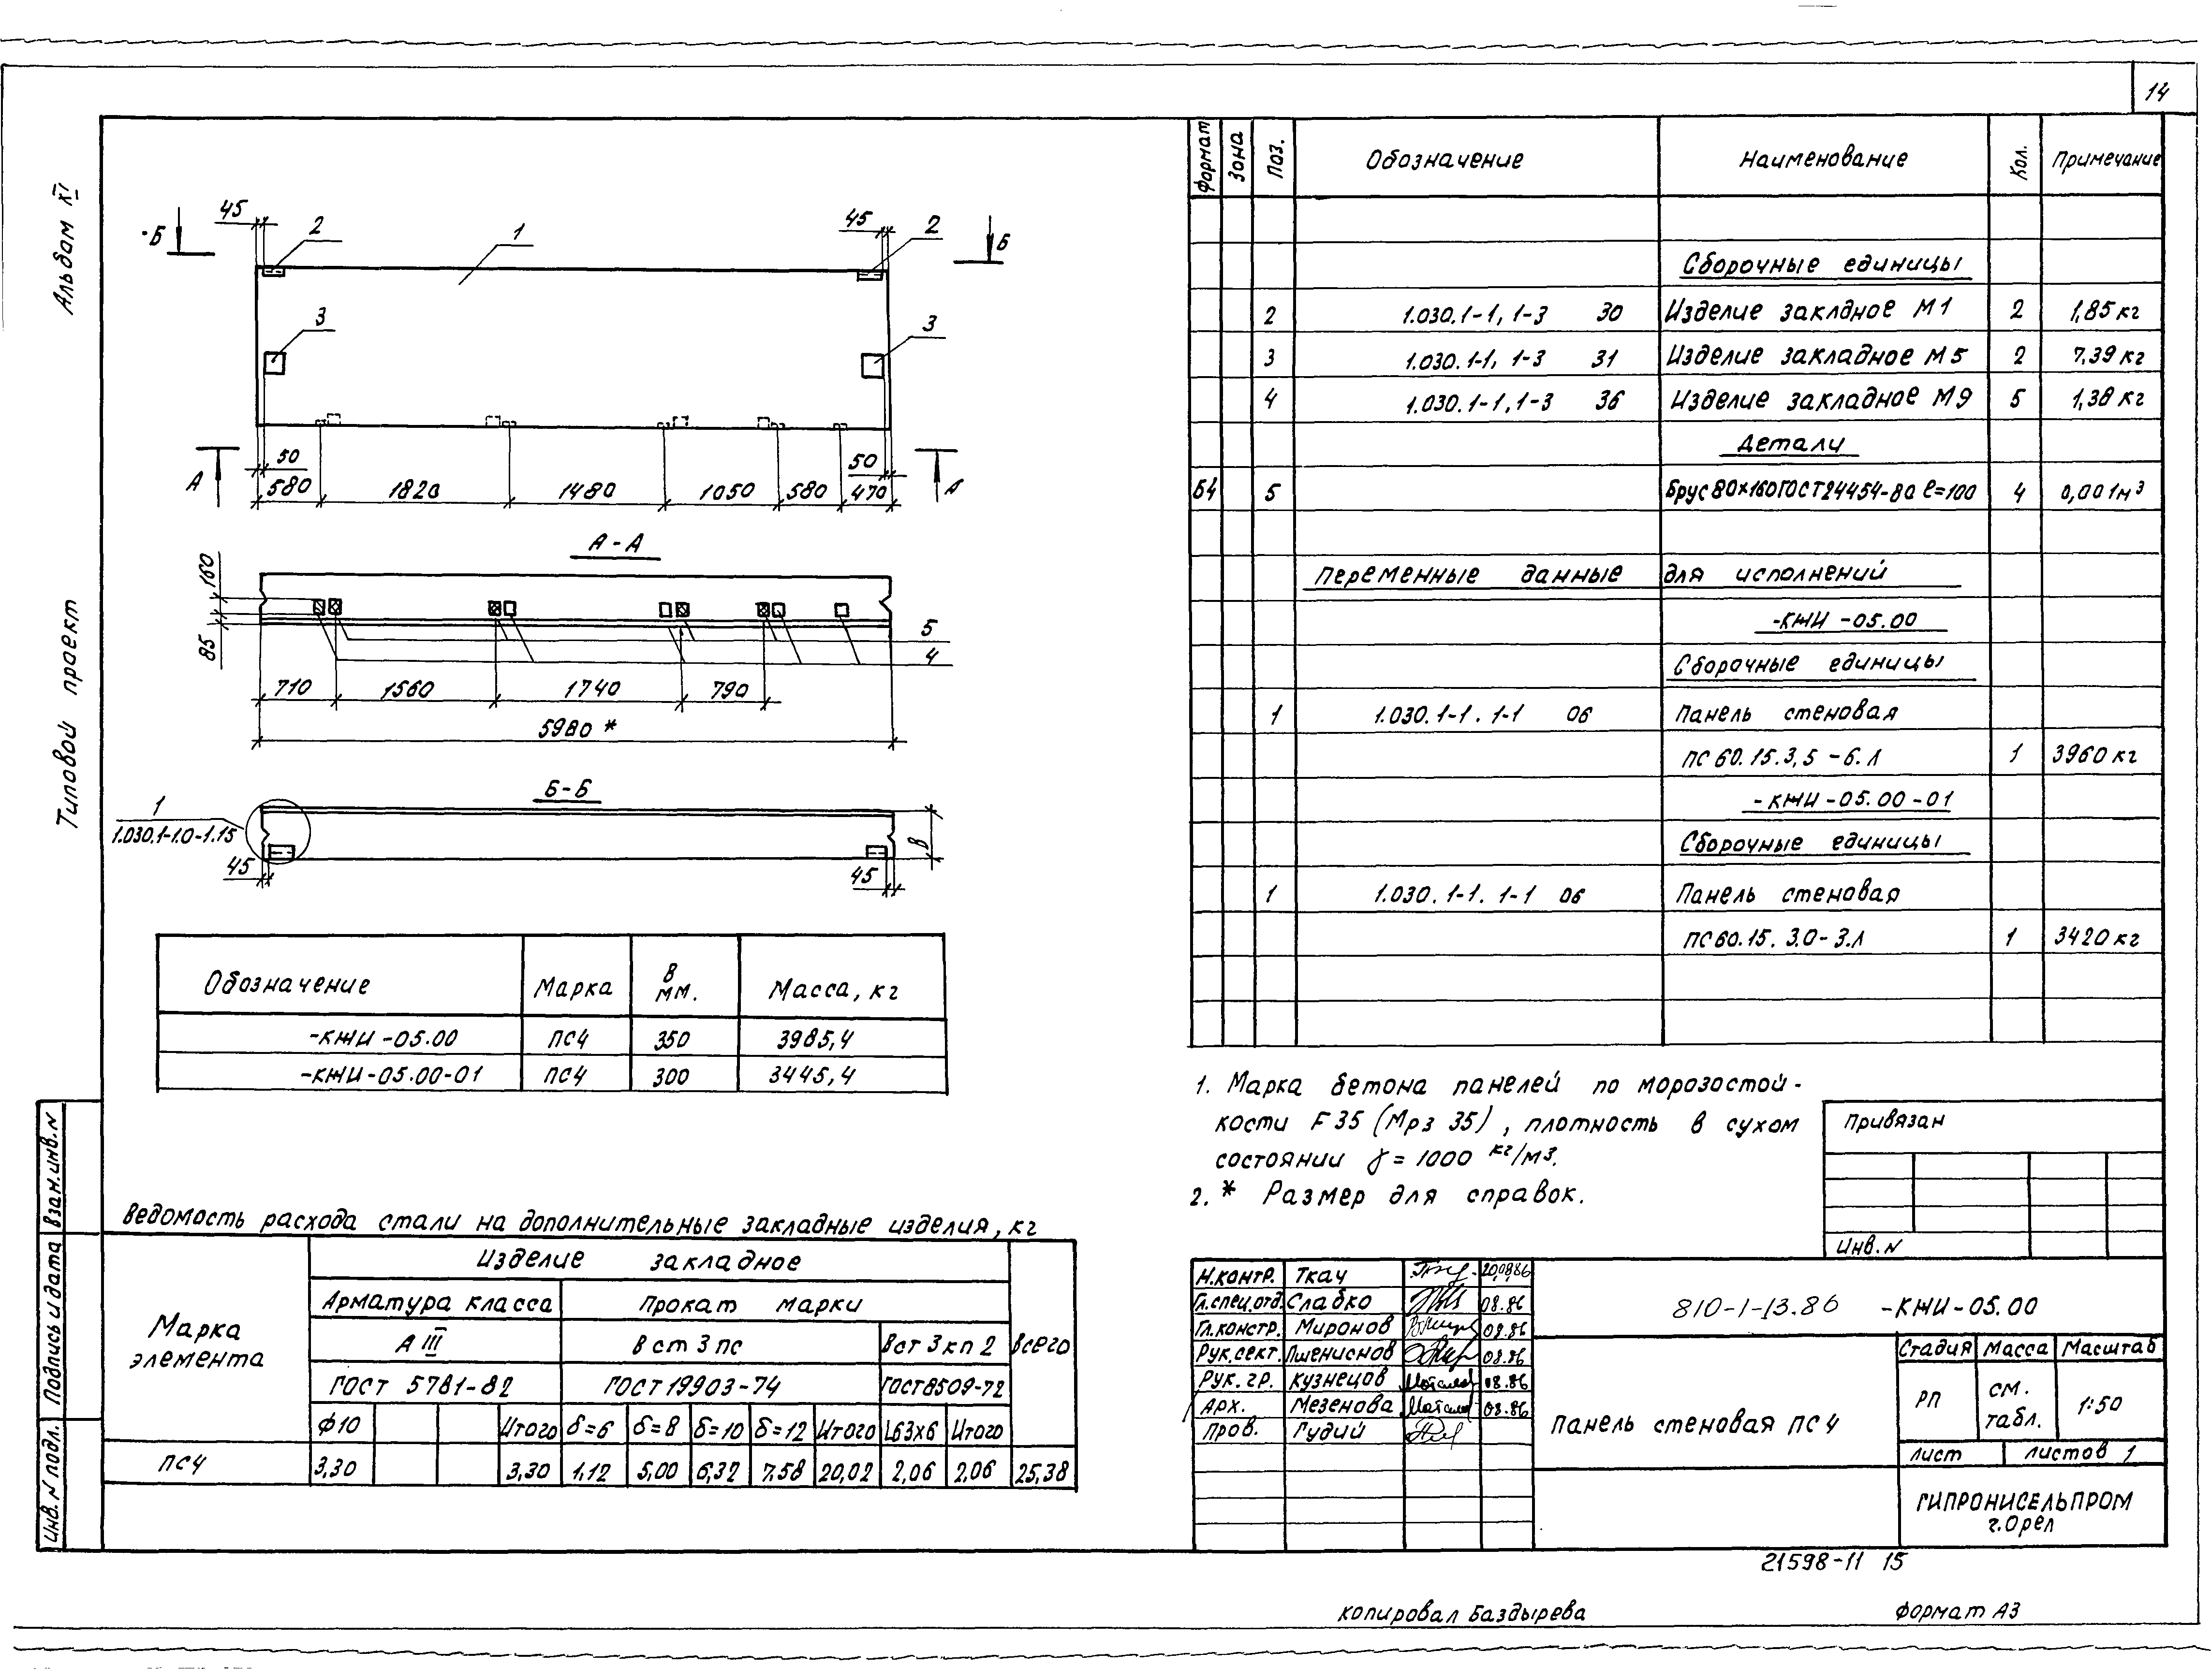 14
Альбом XI
Типовой проект
45
2
1
45
2
Б
Б
3
3
50
50
А
А
580
1820
1480
1050
580
470
А-А
160
85
5
4
710
1560
1740
790
5980 *
Б-Б
1
1.030.1-1.0-1.15
45
45
В
Обозначение Марка В мм. Масса, кг
-КЖИ-05.00 ПС4 350 3985,4
-КЖИ-05.00-01 ПС4 300 3445,4
Ведомость расхода стали на дополнительные закладные изделия, кг
Марка элемента
Изделие закладное
Всего
Арматура класса
Прокат марки
А III
Вст 3 пс
Вст 3 кп 2
ГОСТ 5781-82
ГОСТ 19903-74
ГОСТ 8509-72
Ф10 Итого δ=6 δ=8 δ=10 δ=12 Итого L63х6 Итого
ПС4 3,30 3,30 1,12 5,00 6,32 7,58 20,02 2,06 2,06 25,38
Инв. N подл.
Подпись и дата
Взан. инв. N
Формат Зона Поз. Обозначение Наименование Кол. Примечание
Сборочные единицы
2 1.030.1-1, 1-3 30 Изделие закладное М1 2 1,85 кг
3 1.030.1-1, 1-3 31 Изделие закладное М5 2 7,39 кг
4 1.030.1-1, 1-3 36 Изделие закладное М9 5 1,38 кг
Детали
Б4 5 Брус 80×160 ГОСТ 24454-80 ℓ=100 4 0,001м³
Переменные данные для исполнений
-КЖИ-05.00
Сборочные единицы
1 1.030.1-1. 1-1 06 Панель стеновая
ПС 60.15.3,5-6.Л 1 3960 кг
-КЖИ-05.00-01
Сборочные единицы
1 1.030.1-1. 1-1 06 Панель стеновая
ПС60.15.3.0-3.Л 1 3420 кг
1. Марка бетона панелей по морозостой-
кости F35 (Мрз 35), плотность в сухом
состоянии γ = 1000 кг/м3.
2. * Размер для справок.
Привязан
Инв. N
Н.контр. Ткач 20.08.86
Гл.спец.отд. Слабко 08.86
Гл.констр. Миронов 08.86
Рук.сект. Пшениснов 08.86
Рук. гр. Кузнецов 08.86
Арх. Мезенова 08.86
Пров. Гудий
810-1-13.86 -КЖИ-05.00
Панель стеновая ПС 4
Стадия Масса Масштаб
РП см. табл. 1:50
Лист Листов 1
ГИПРОНИСЕЛЬПРОМ
г. Орел
21598-11 15
Копировал Баздырева
Формат А3